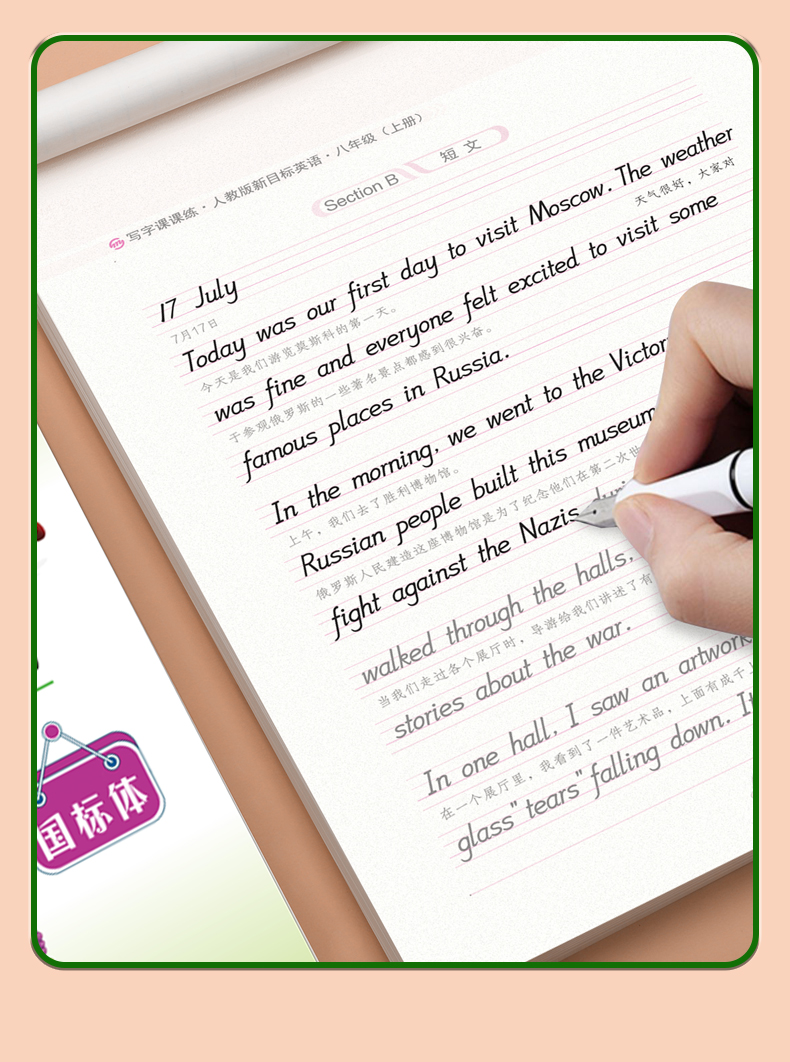 写字课课练·人教版新目标英语·八年级（上册）
Section B 短文
17 July
7月17日
Today was our first day to visit Moscow. The weather
今天是我们游览莫斯科的第一天。 天气很好，大家对
was fine and everyone felt excited to visit some
于参观俄罗斯的一些著名景点都感到很兴奋。
famous places in Russia.
In the morning, we went to the
上午，我们去了胜利博物馆。
Russian people built this museum
俄罗斯人民建造这座博物馆是为了纪念他们在第二次世
fight against the Nazis
walked through the halls,
当我们走过各个展厅时，导游给我们讲述了有
stories about the war.
In one hall, I saw an artwork
在一个展厅里，我看到了一件艺术品，上面有成千上
glass "tears" falling down. It
国标体